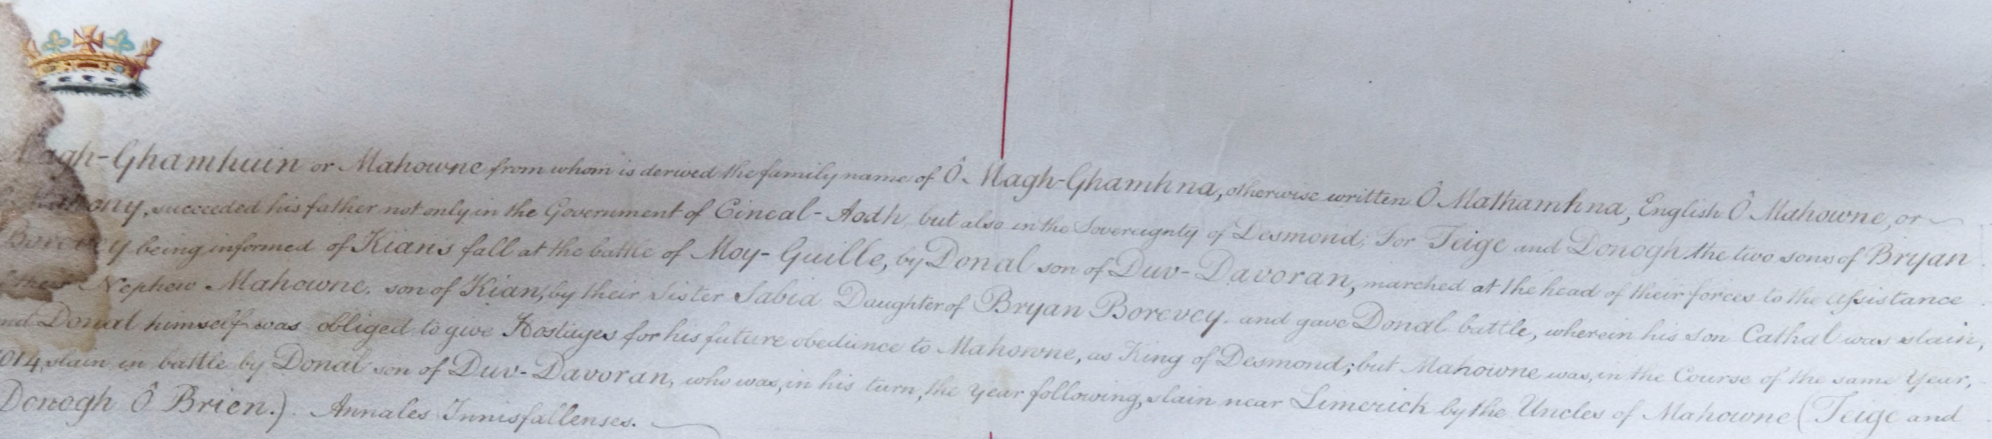 Magh-Ghamhuin or Mahowne from whom is derived the family name of Ô Magh-Ghamhna, otherwise written Ô Mathamhna, English Ô Mahowne, or
succeeded his father not only in the Government of Cineal-Aodh, but also in the Sovereignty of Desmond; For Teige and Donogh the two sons of Bryan
Borevey being informed of Kians fall at the battle of Moy-Guille, by Donal son of Duv-Davoran, marched at the head of their forces to the assistance
of their Nephew Mahowne, son of Kian, by their Sister Sabia Daughter of Bryan Borevey, and gave Donal battle, wherein his son Cathal was slain,
and Donal himself was obliged to give Hostages for his future obedience to Mahowne, as King of Desmond; but Mahowne was, in the Course of the same Year,
1014, slain in battle by Donal son of Duv-Davoran, who was, in his turn, the Year following, slain near Limerick by the Uncles of Mahowne (Teige and
Donogh Ô Brien.) Annales Innisfallenses.